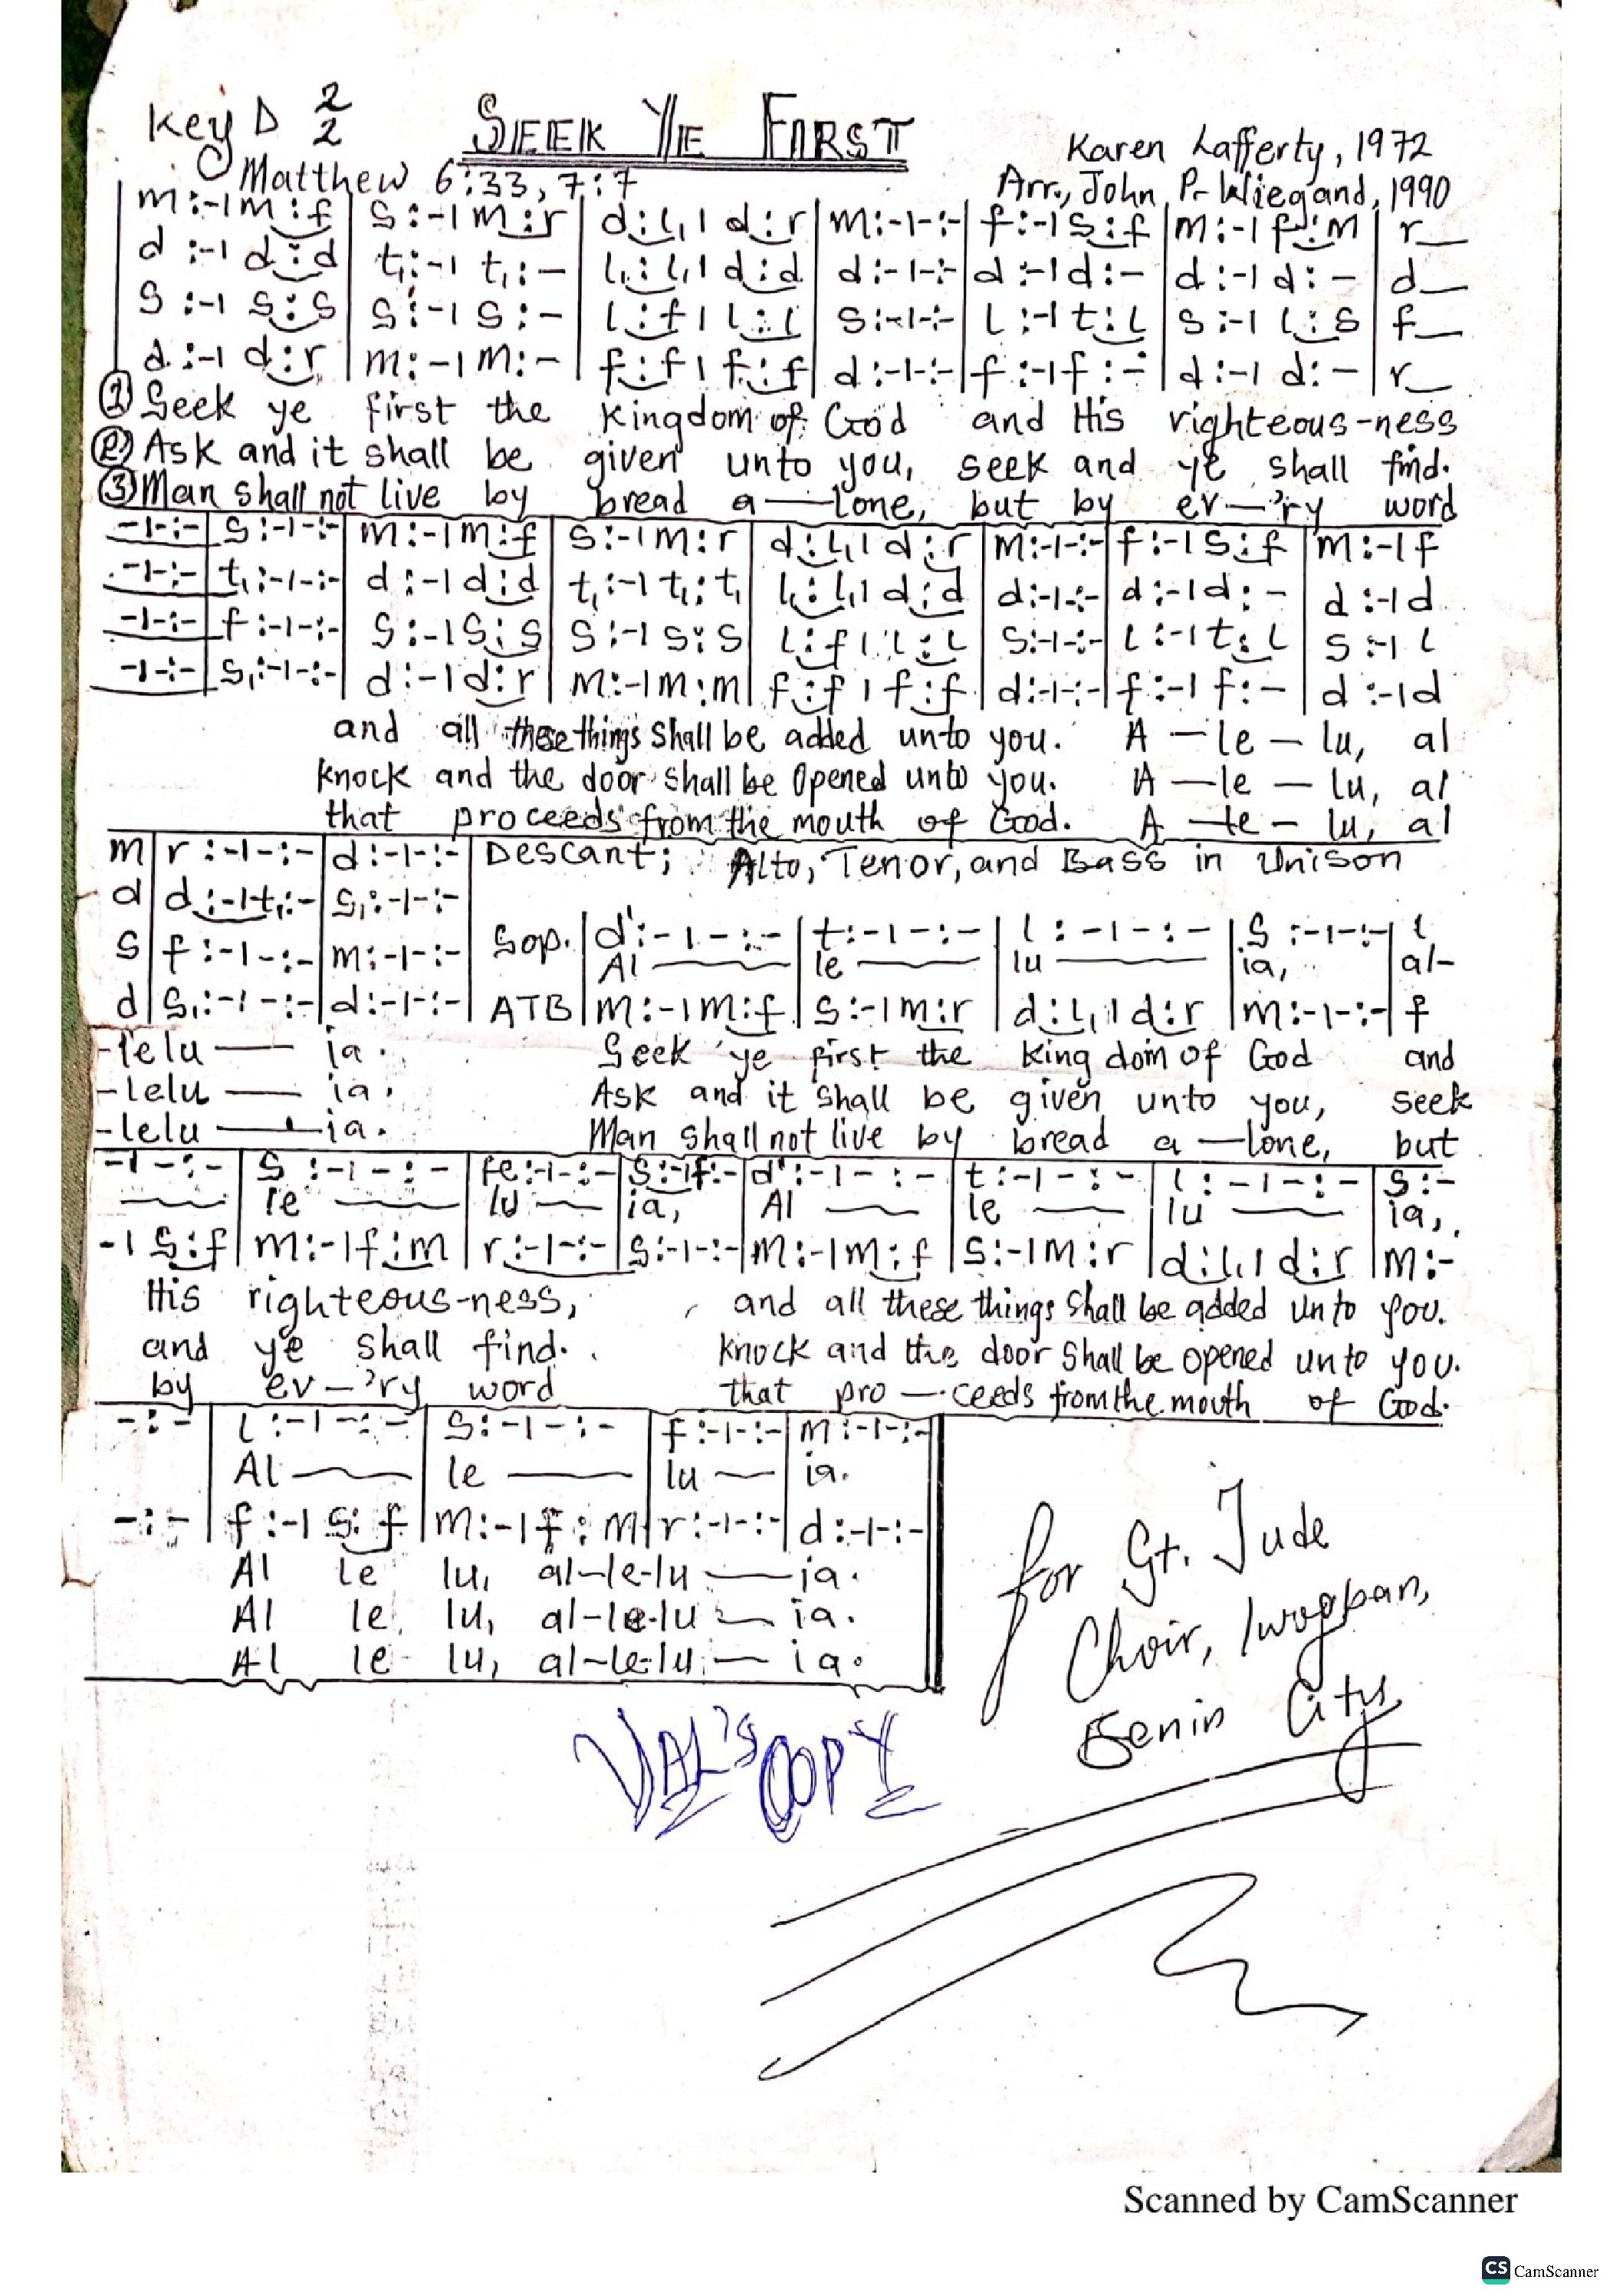 Key D 2/2
SEEK YE FIRST
Karen Lafferty, 1972
Matthew 6:33, 7:7
Arr., John P. Wiegand, 1990
m:-|m:f | s:-|m:r | d:l,|d:r | m:-|-:- | f:-|s:f | m:-|f:m | r__
d:-|d:d | t,:-|t,:- | l,:l,|d:d | d:-|-:- | d:-|d:- | d:-|d:- | d__
s:-|s:s | s:-|s:- | l:f|l:l | s:-|-:- | l:-|t:l | s:-|l:s | f__
d:-|d:r | m:-|m:- | f:f|f:f | d:-|-:- | f:-|f:- | d:-|d:- | r__
① Seek ye first the kingdom of God and His righteous-ness
② Ask and it shall be given unto you, seek and ye shall find.
③ Man shall not live by bread a—lone, but by ev—'ry word
-|-:- | s:-|-:- | m:-|m:f | s:-|m:r | d:l,|d:r | m:-|-:- | f:-|s:f | m:-|f
-|-:- | t,:-|-:- | d:-|d:d | t,:-|t,:t, | l,:l,|d:d | d:-|-:- | d:-|d:- | d:-|d
-|-:- | f:-|-:- | s:-|s:s | s:-|s:s | l:f|l:l | s:-|-:- | l:-|t:l | s:-|l
-|-:- | s,:-|-:- | d:-|d:r | m:-|m:m | f:f|f:f | d:-|-:- | f:-|f:- | d:-|d
and all these things shall be added unto you. A—le—lu, al
knock and the door shall be opened unto you. A—le—lu, al
that proceeds from the mouth of God. A—le—lu, al
m | r:-|-:- | d:-|-:- | Descant; Alto, Tenor, and Bass in Unison
d | d:-|t,:- | s,:-|-:-
s | f:-|-:- | m:-|-:- | Sop. | d':-|-:- | t:-|-:- | l:-|-:- | s:-|-:- | l
Al —— le —— lu —— ia, al-
d | s,:-|-:- | d:-|-:- | ATB | m:-|m:f | s:-|m:r | d:l,|d:r | m:-|-:- | f
-lelu — ia. Seek ye first the king dom of God and
-lelu — ia. Ask and it shall be given unto you, seek
-lelu — ia. Man shall not live by bread a—lone, but
-|-:- | s:-|-:- | fe:-|-:- | s:-|f:- | d':-|-:- | t:-|-:- | l:-|-:- | s:-
—— le —— lu — ia, Al —— le —— lu —— ia,
-|s:f | m:-|f:m | r:-|-:- | s:-|-:- | m:-|m:f | s:-|m:r | d:l,|d:r | m:-
His righteous-ness, and all these things shall be added unto you.
and ye shall find. knock and the door shall be opened unto you.
by ev—'ry word that pro—ceeds from the mouth of God.
-:- | l:-|-:- | s:-|-:- | f:-|-:- | m:-|-:-
Al —— le —— lu — ia.
-:- | f:-|s:f | m:-|f:m | r:-|-:- | d:-|-:-
Al le lu, al-le-lu — ia.
Al le lu, al-le-lu — ia.
Al le lu, al-le-lu — ia.
for St. Jude
Choir, Iwogban,
Benin City
VAL'S COPY
Scanned by CamScanner
CS CamScanner